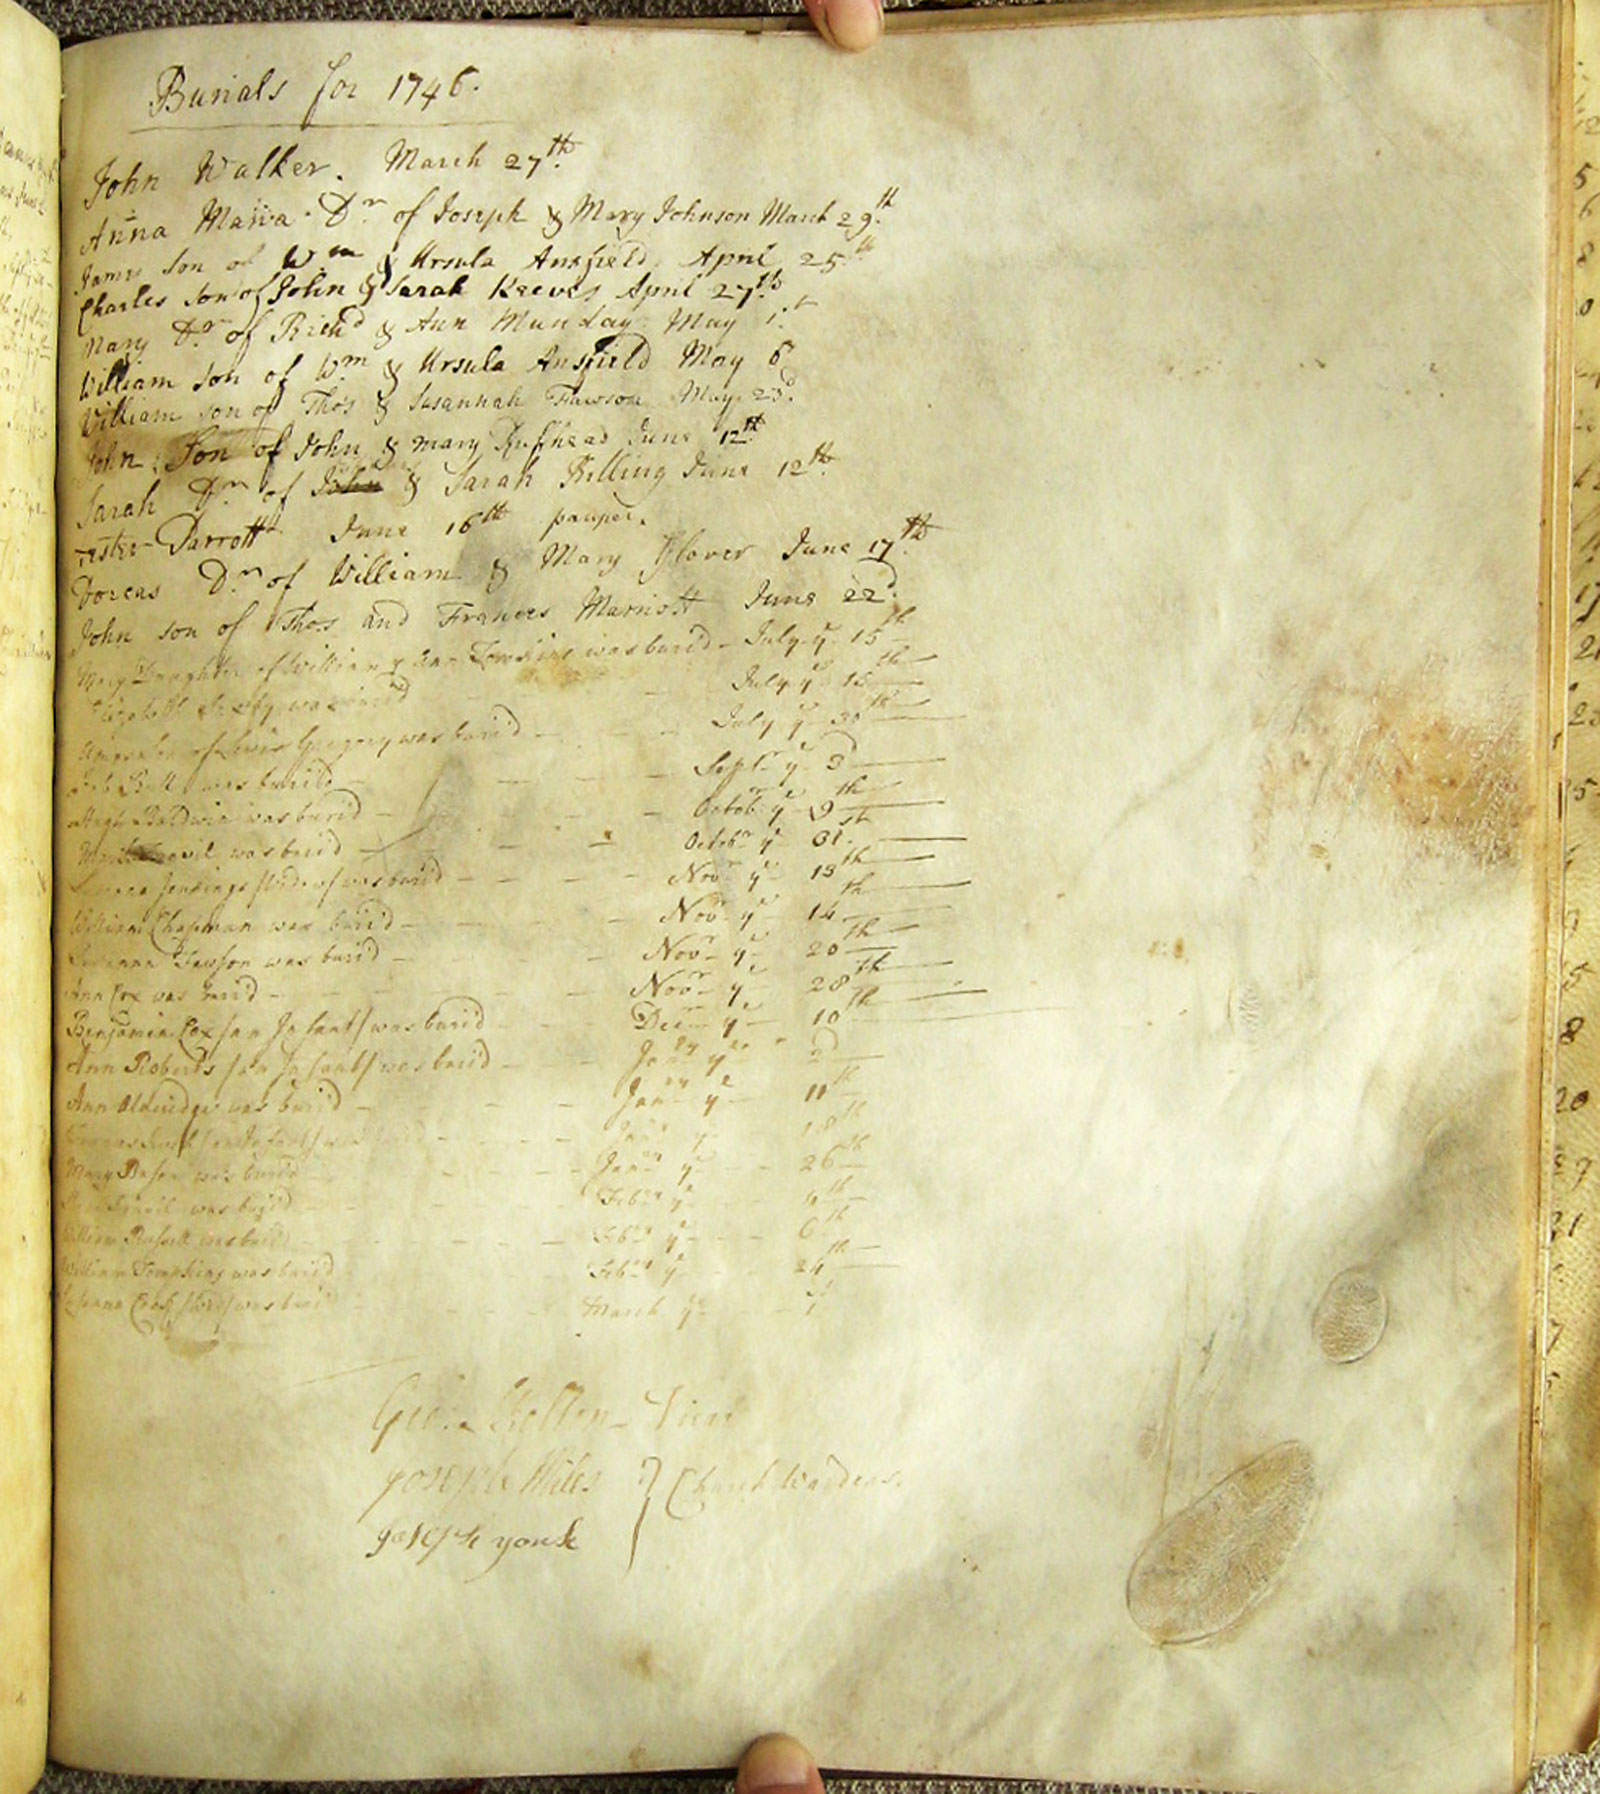 Burials for 1746.
John Walker. March 27th.
Anna Maria Dr. of Joseph & Mary Johnson March 29th.
James son of Wm & Ursula Ansfield. April 25th
Charles son of John & Sarah Keeves April 27th.
Mary Dr. of Richd & Ann Munday May 1st
William son of Wm & Ursula Ansfield May 6
William son of Thos & Susannah Fawson May 23d.
John Son of John & Mary Rufhead June 12th
Sarah Dr of John & Sarah Billing June 12th.
Parrott June 16th pauper.
Dorcas Dr. of William & Mary Glover June 17th.
John son of Thos and Frances Marriott June 22d.
Mary Daughter of William & Ann was buri'd July ye 15th
Elizabeth was buri'd July ye 15th
son of Lewis Gregory was buri'd July ye 30th
was buri'd Septr ye 3d
Hugh Baldwin was buri'd Octobr ye 9th
was buri'd Octobr ye 31st
Jennings Widow was buri'd Novr ye 13th
William Chapman was buri'd Novr ye 14th
Susanna Fawson was buri'd Novr ye 20th
Ann Cox was buri'd Novr ye 28th
Benjamin Cox (an Infant) was buri'd Decr ye 10th
Ann Roberts (an Infant) was buri'd Janry ye 2d
Ann Alderidge was buri'd Janry ye 11th
(an Infant) was buri'd Janry ye 18th
Mary was buri'd Janry ye 26th
was buri'd Febry ye 4th
William Russell was buri'd Febry ye 6th
William Tompkins was buri'd Febry ye 24th
was buri'd March ye 1st
Vicar
Joseph Miles } Church Wardens.
Joseph york